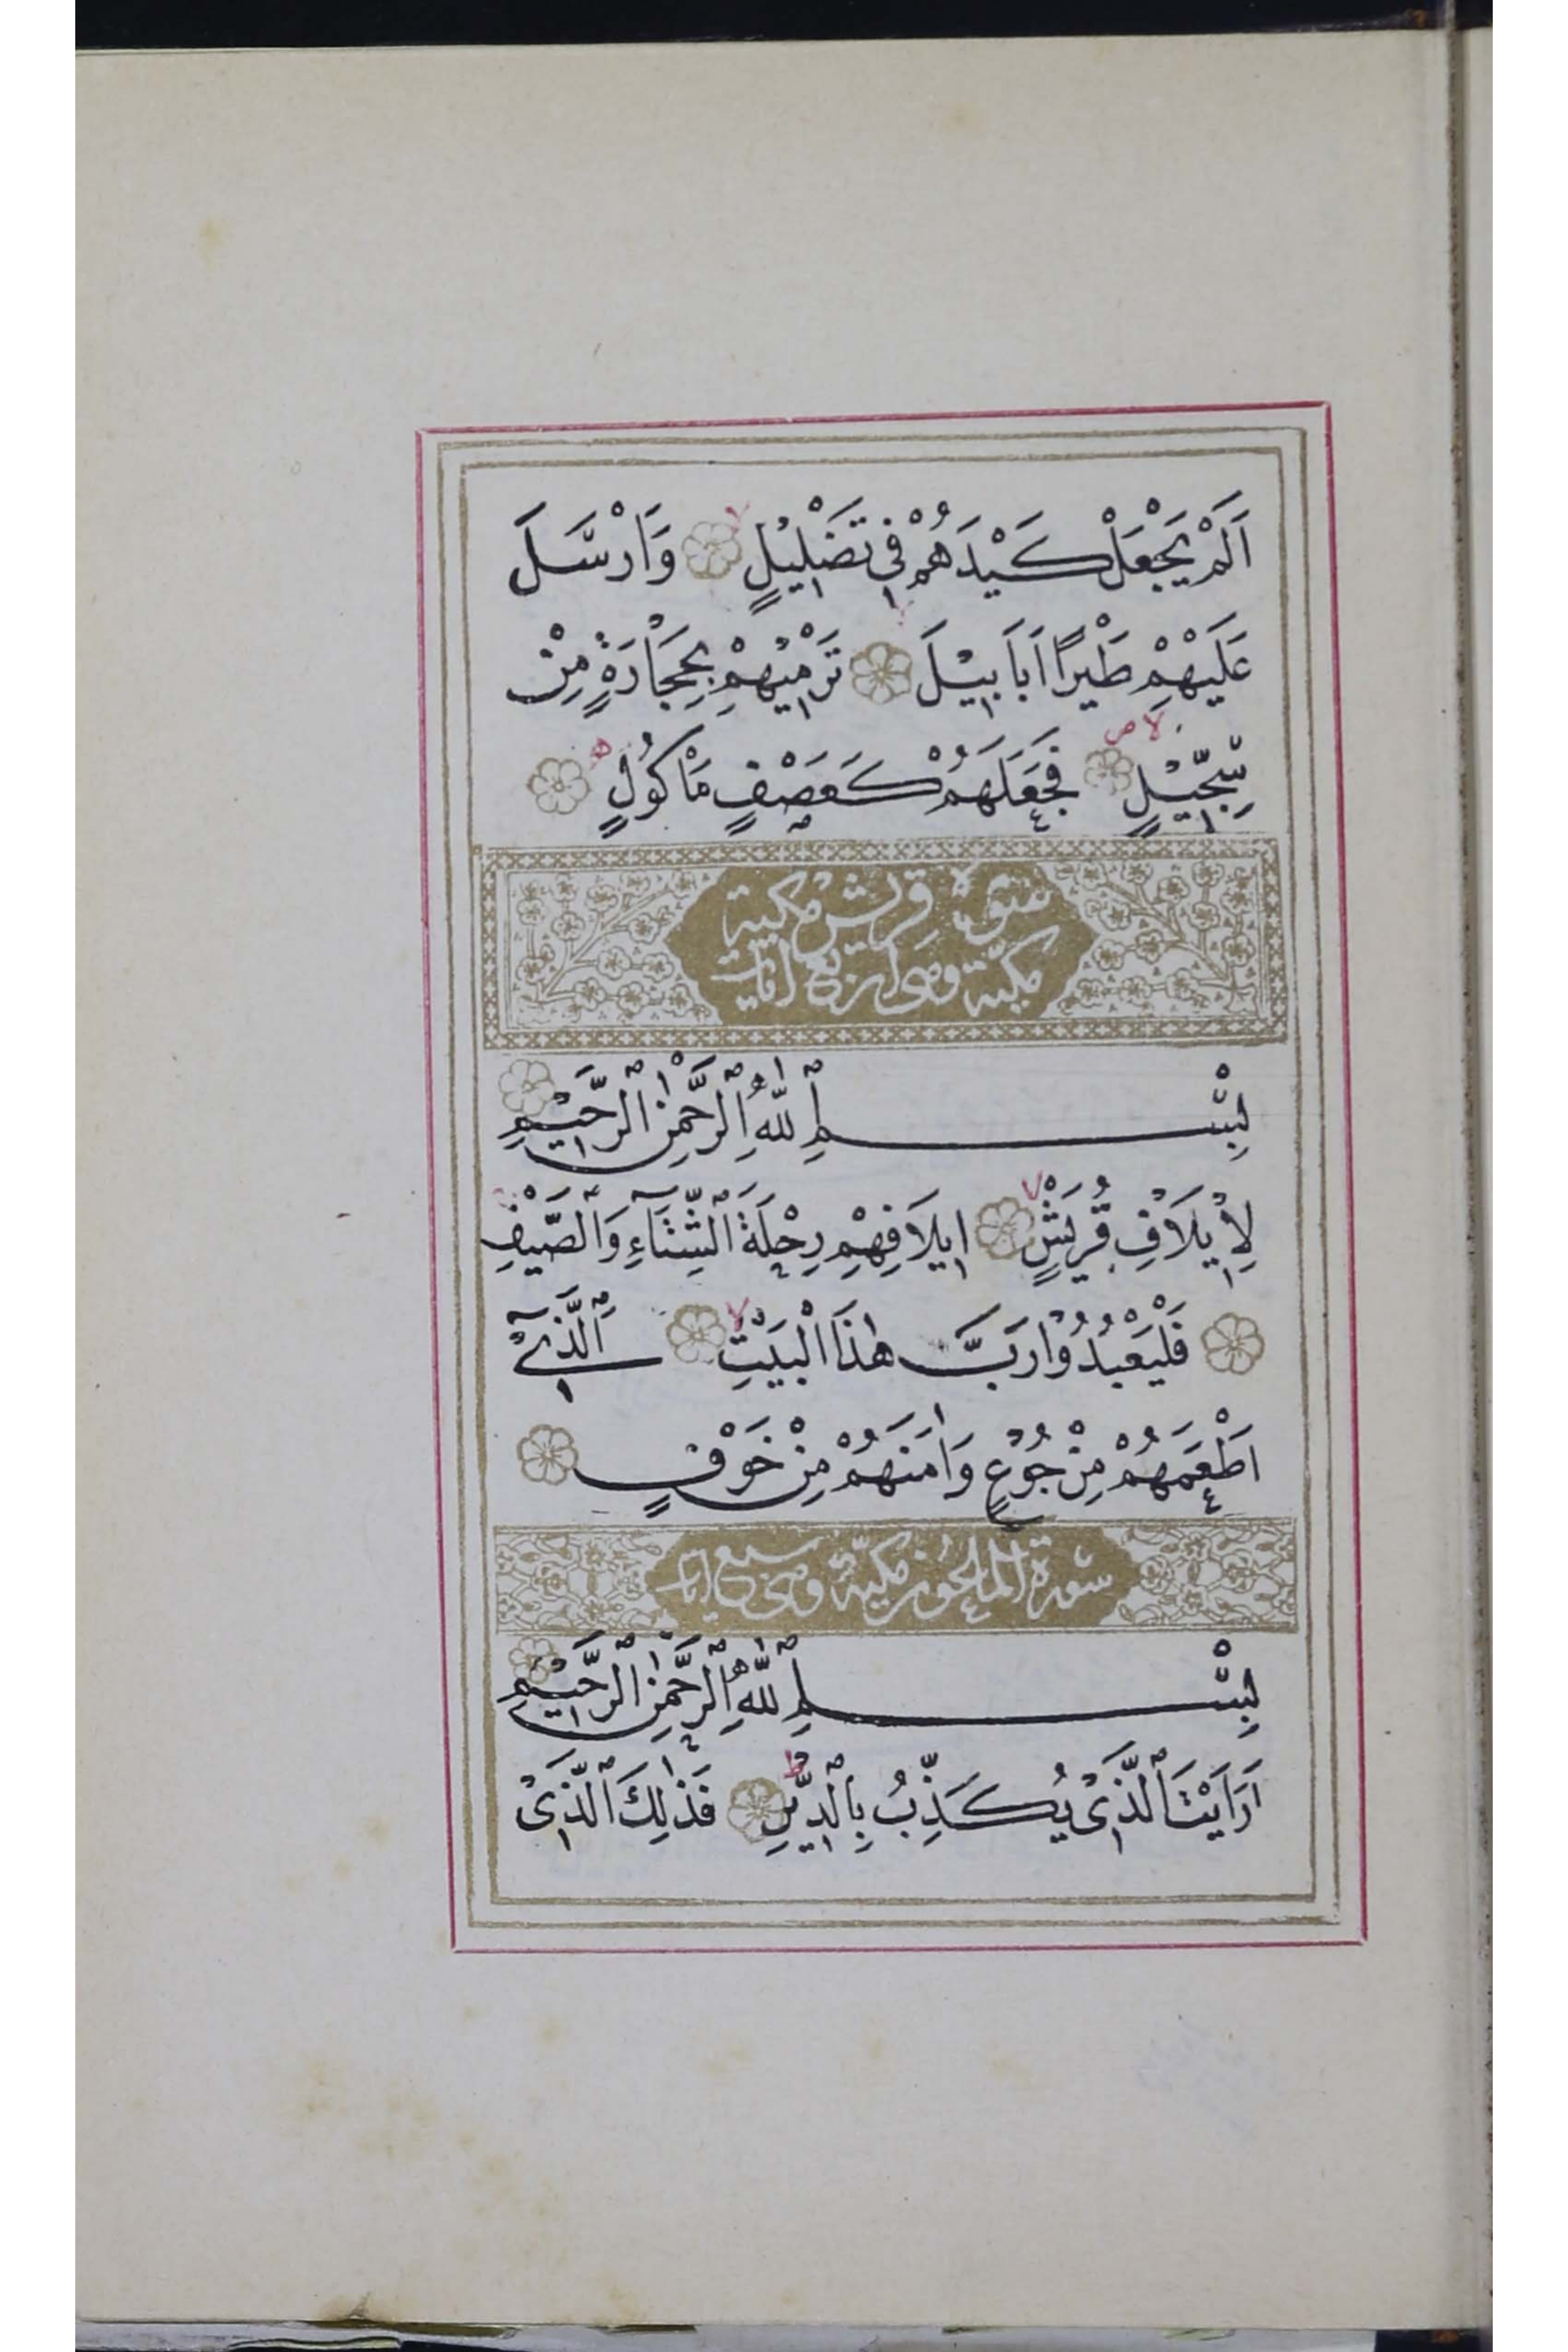 اَلَمْ يَجْعَلْ كَيْدَهُمْ فِي تَضْلِيْلٍ وَاَرْسَلَ
عَلَيْهِمْ طَيْرًا اَبَابِيْلَ تَرْمِيْهِمْ بِحِجَارَةٍ مِنْ
سِجِّيْلٍ فَجَعَلَهُمْ كَعَصْفٍ مَاْكُوْلٍ
سورة قريش مكية
مكية وهى اربع ايات
بِسْمِ اللّٰهِ الرَّحْمٰنِ الرَّحِيْمِ
لِاِيْلَافِ قُرَيْشٍ اِيلَافِهِمْ رِحْلَةَ الشِّتَآءِ وَالصَّيْفِ
فَلْيَعْبُدُوْا رَبَّ هٰذَا الْبَيْتِ اَلَّذِيْٓ
اَطْعَمَهُمْ مِنْ جُوْعٍ وَاٰمَنَهُمْ مِنْ خَوْفٍ
سورة الماعون مكية وهى سبع ايات
بِسْمِ اللّٰهِ الرَّحْمٰنِ الرَّحِيْمِ
اَرَاَيْتَ الَّذِيْ يُكَذِّبُ بِالدِّيْنِ فَذٰلِكَ الَّذِيْ